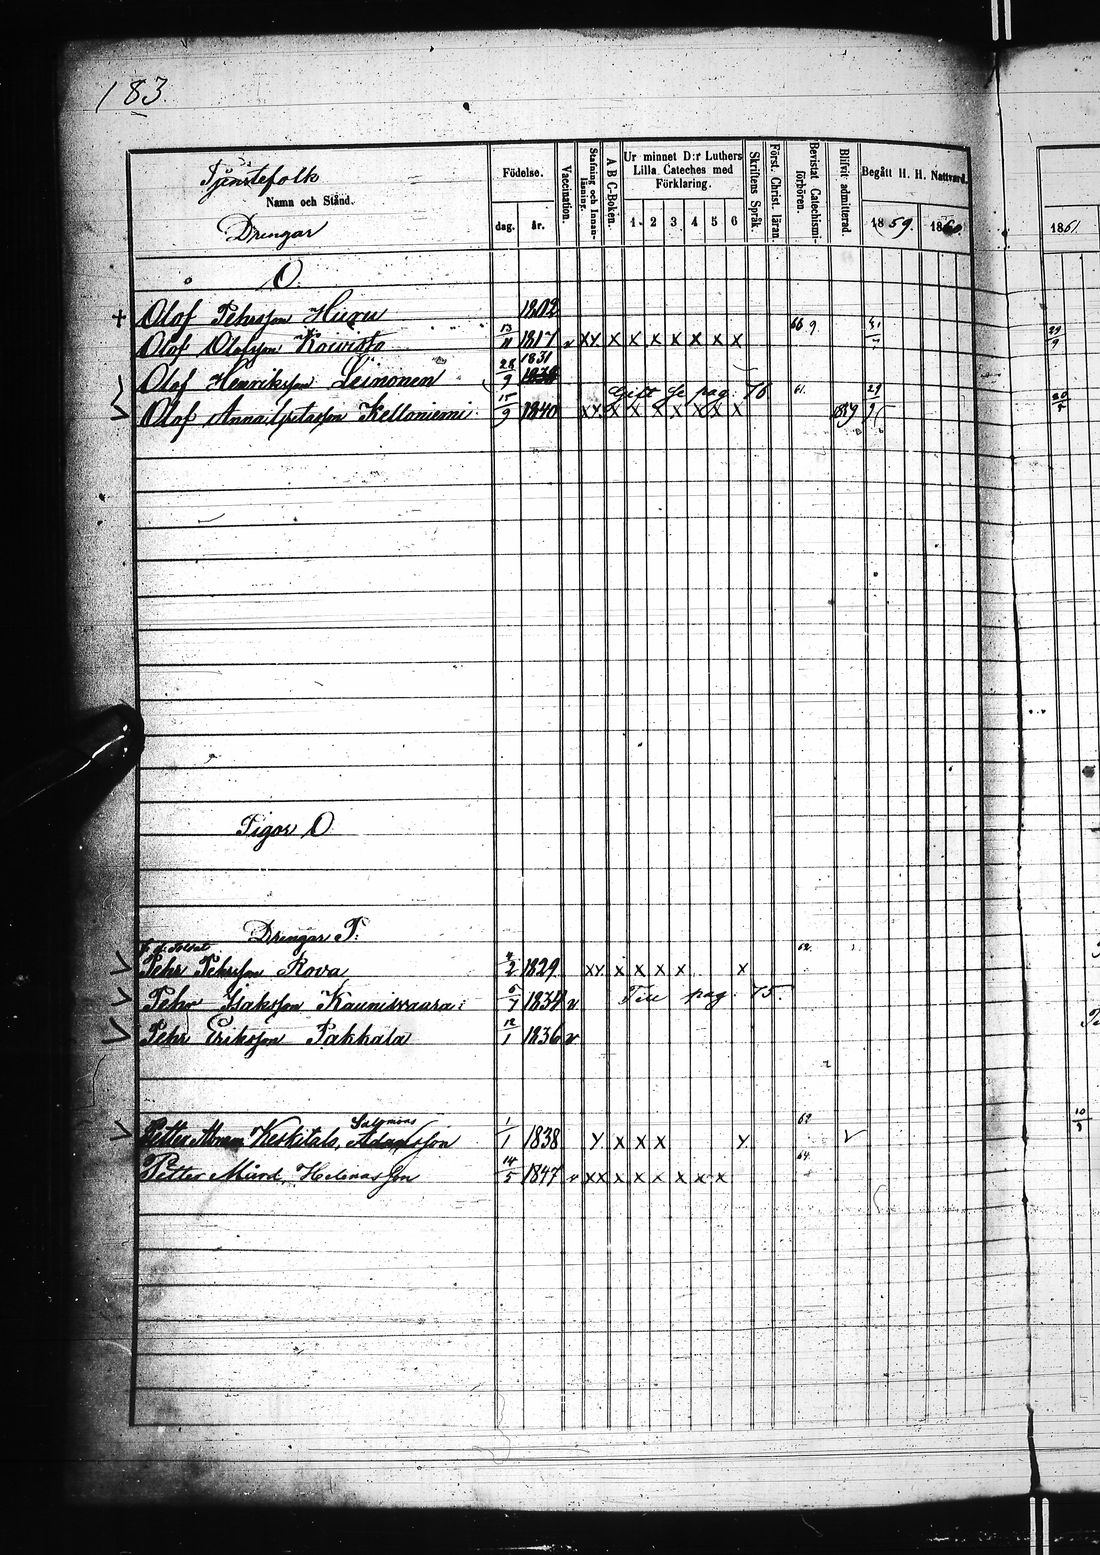 183
Tjenstefolk
Namn och Stånd.
Drengar
Födelse.
dag. år.
Vaccination.
Stafning och Innanläsning.
A B C-Boken.
Ur minnet D:r Luthers Lilla Cateches med Förklaring.
1 2 3 4 5 6
Skriftens Språk.
Först. Christ. läran.
Bevistat Catechismiförhören.
Blifvit admitterad.
Begått H. H. Nattvard.
1859. 1860
1861
O.
+ Olof Pehrsson Huru 1802
Olof Olofsson Koivisto 13/11 1817 v XX X X X X X X X
Olof Henriksson Leinonen 28/9 1831
Gift Se pag. 76 61.
Olof Anna Gretasson Kelloniemi 15/9 1840 XX X X X X X X X 1859
Pigor O
Drengar P.
f. d. Soldat
Pehr Pehrsson Rova 1829 XX X X X X X 62.
Pehr Isaksson Kaunisvaara 6/7 1834 v Till pag. 75.
Pehr Eriksson Pakkala 12/1 1836 v
Salomons
Petter Keskitalo, Adamsson 1/1 1838 X X X X X
Petter Mård, Helenasson 14/5 1847 v XX X X X X X X 64.